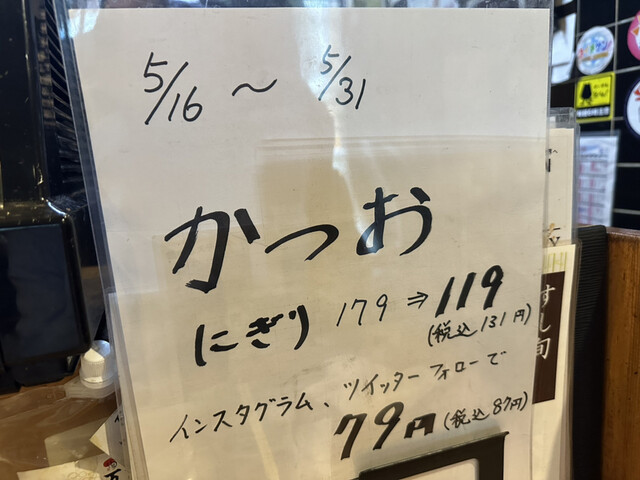 5/16 ～ 5/31
かつお
にぎり 179 ⇒ 119
(税込131円)
インスタグラム、ツイッターフォローで
79円(税込87円)
すし旬